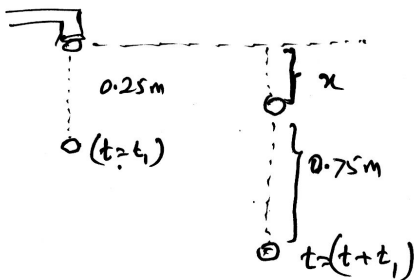 x
0.25m
(t=t₁)
0.75m
t=(t+t₁)